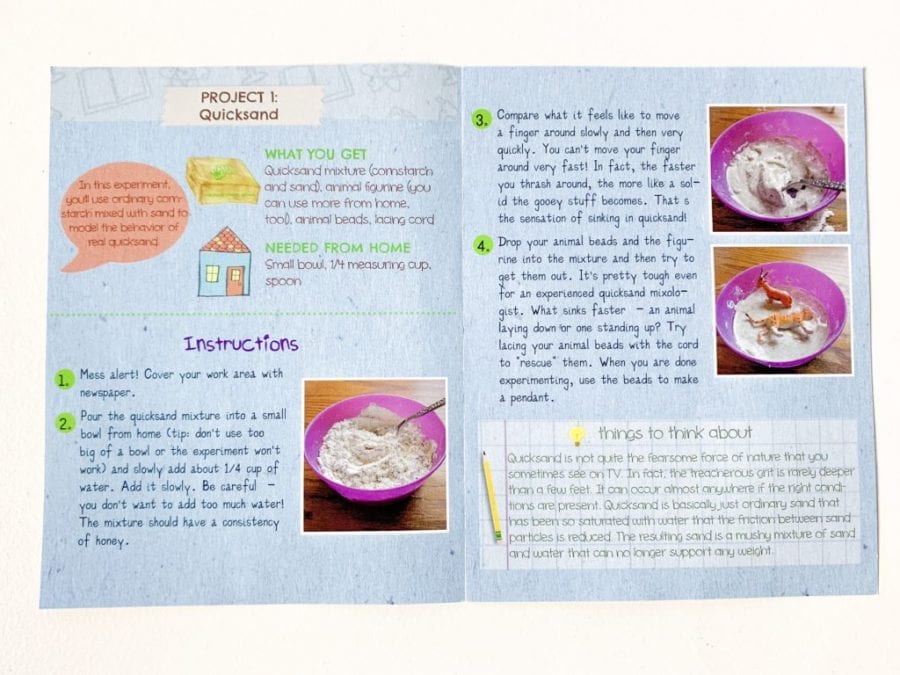 PROJECT 1:
Quicksand
In this experiment,
you'll use ordinary corn-
starch mixed with sand to
model the behavior of
real quicksand.
WHAT YOU GET
Quicksand mixture (cornstarch
and sand), animal figurine (you
can use more from home,
too!), animal beads, lacing cord
NEEDED FROM HOME
Small bowl, 1/4 measuring cup,
spoon
Instructions
1. Mess alert! Cover your work area with
newspaper.
2. Pour the quicksand mixture into a small
bowl from home (tip: don't use too
big of a bowl or the experiment won't
work) and slowly add about 1/4 cup of
water. Add it slowly. Be careful -
you don't want to add too much water!
The mixture should have a consistency
of honey.
3. Compare what it feels like to move
a finger around slowly and then very
quickly. You can't move your finger
around very fast! In fact, the faster
you thrash around, the more like a sol-
id the gooey stuff becomes. That s
the sensation of sinking in quicksand!
4. Drop your animal beads and the figu-
rine into the mixture and then try to
get them out. It's pretty tough even
for an experienced quicksand mixolo-
gist. What sinks faster - an animal
laying down or one standing up? Try
lacing your animal beads with the cord
to "rescue" them. When you are done
experimenting, use the beads to make
a pendant.
things to think about
Quicksand is not quite the fearsome force of nature that you
sometimes see on TV. In fact, the treacherous grit is rarely deeper
than a few feet. It can occur almost anywhere if the right condi-
tions are present. Quicksand is basically just ordinary sand that
has been so saturated with water that the friction between sand
particles is reduced. The resulting sand is a mushy mixture of sand
and water that can no longer support any weight.